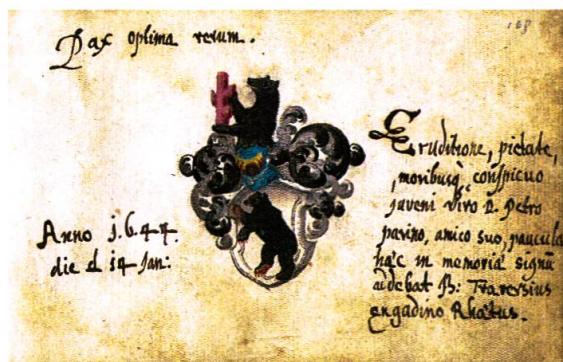 168
Pax optima rerum.
Anno 1.6.47.
die d 14 Jan:
Eruditione, pietate,
moribusq, conspicuo
juveni viro D. Petro
parino, amico suo, paucula
hæc in memoriã signũ
addebat B: Traversius
engadino Rhætus.